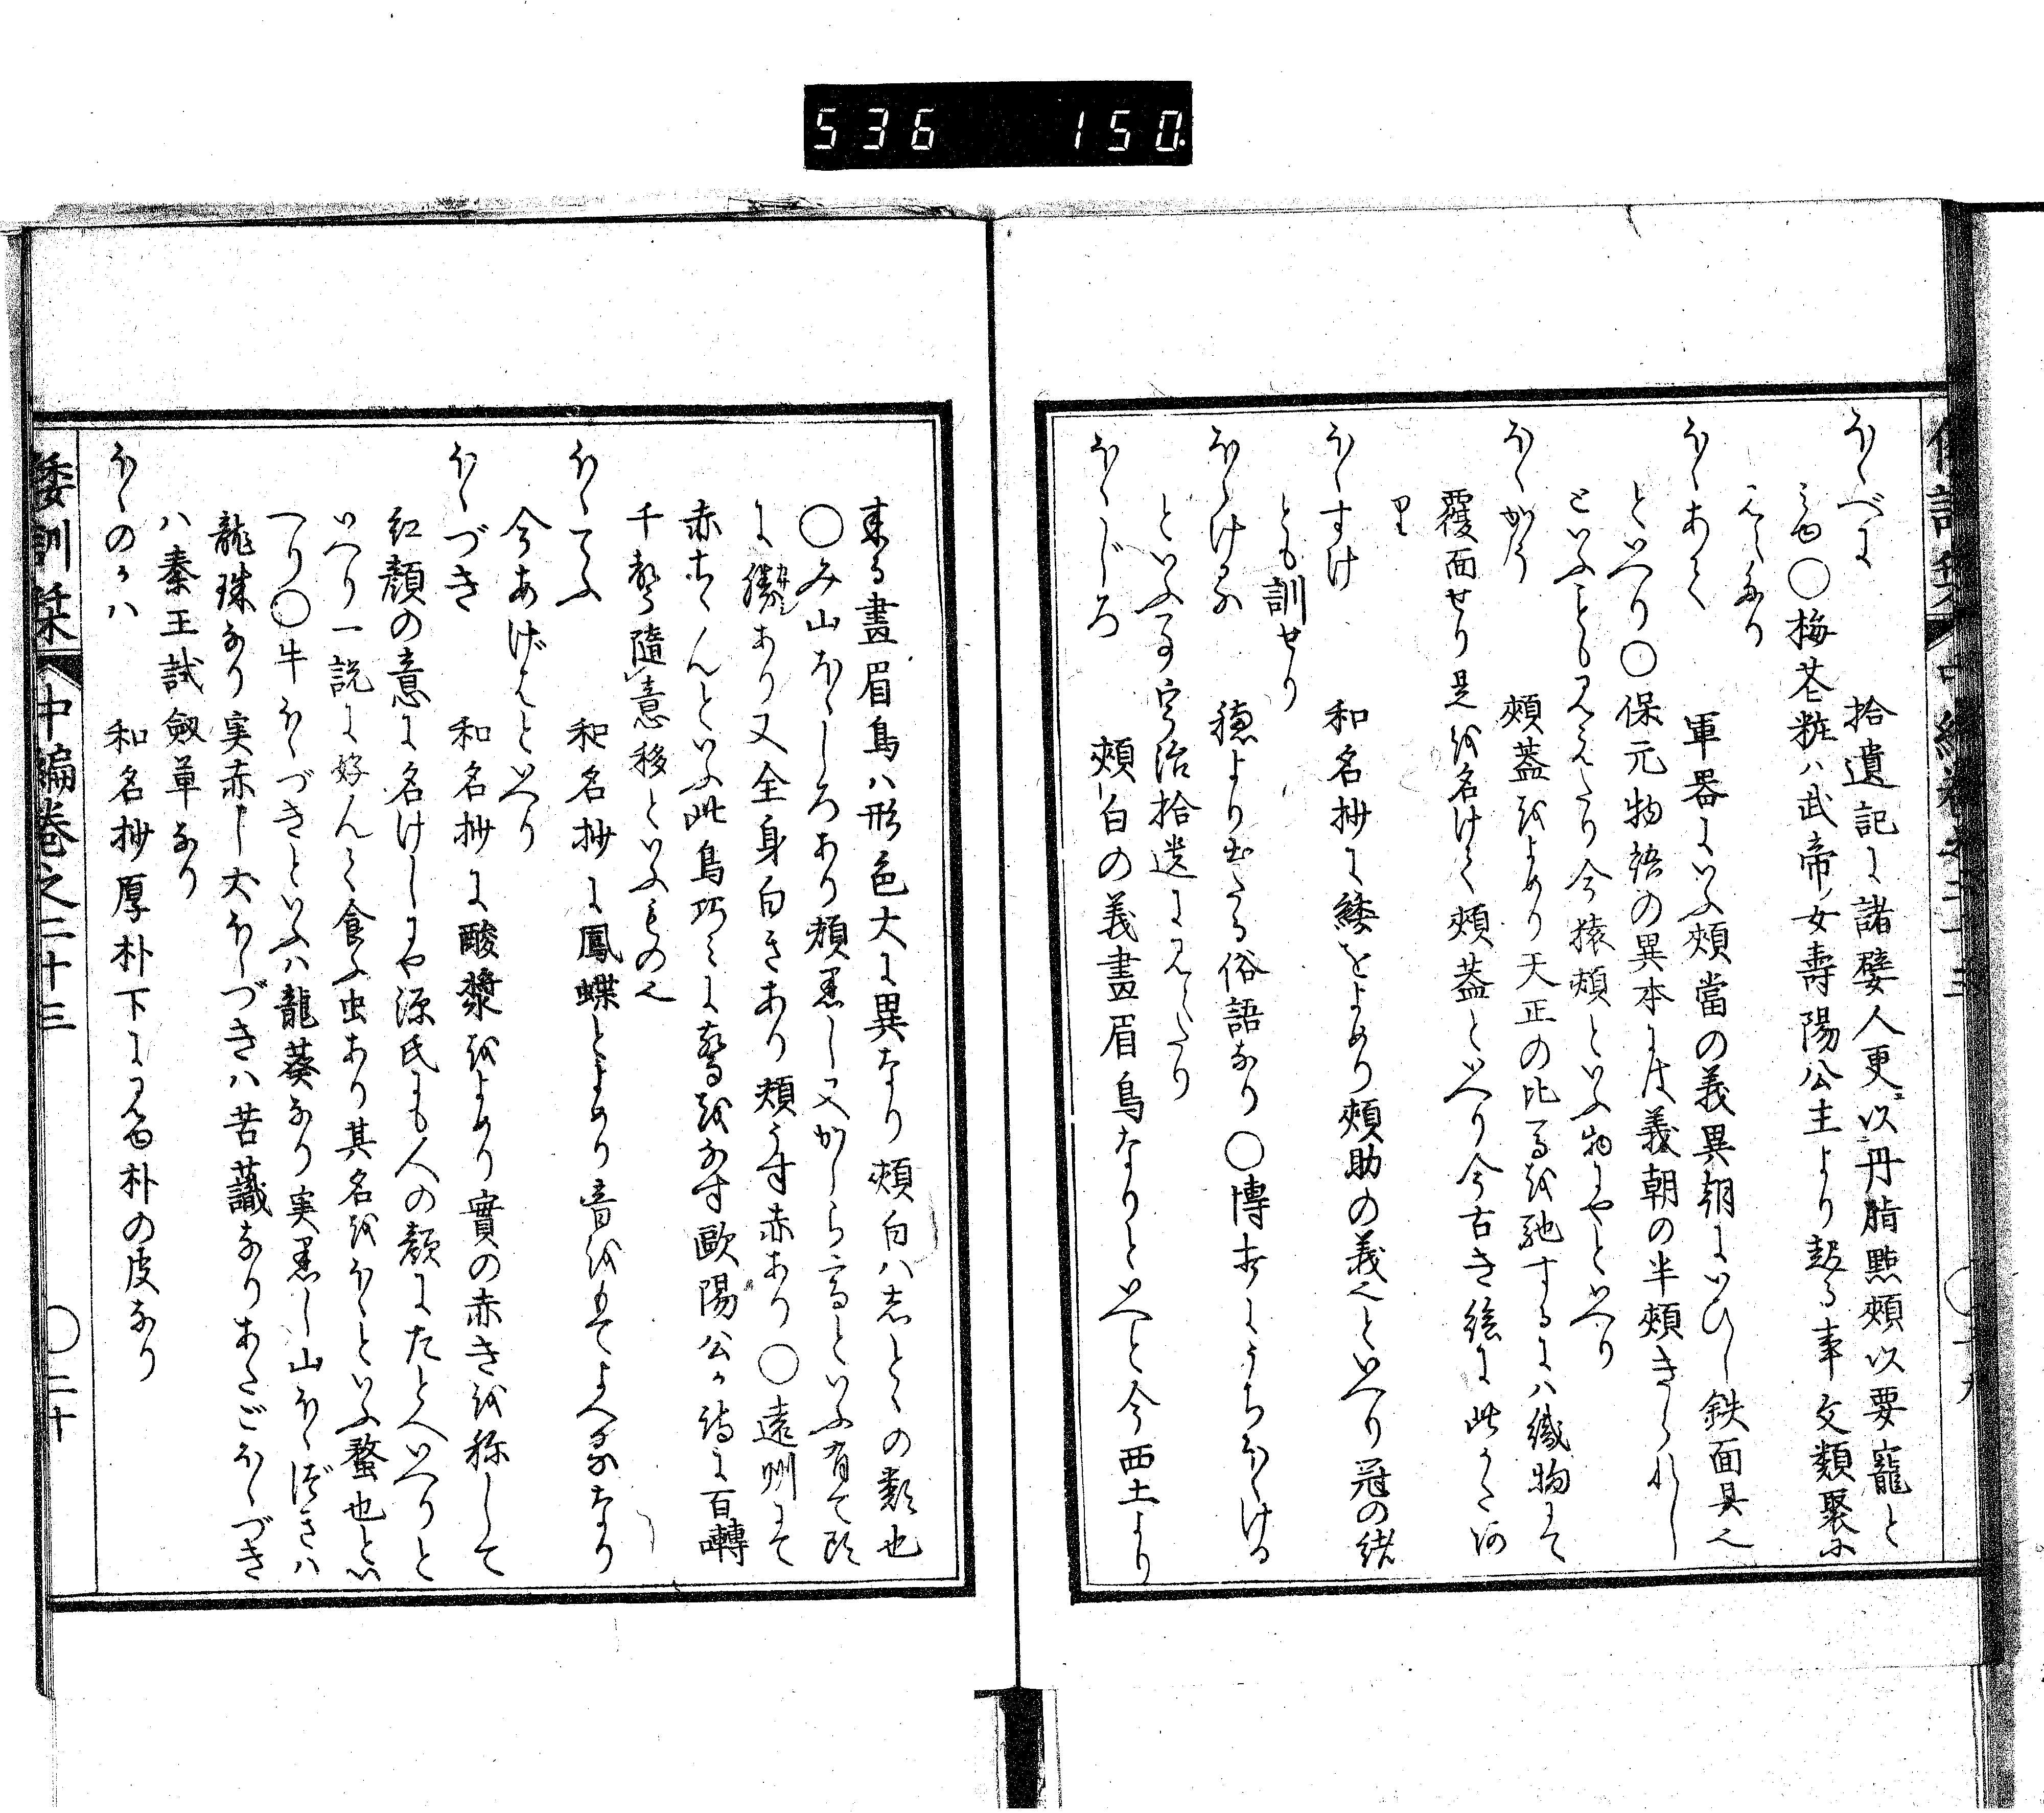 536 150
ほゝべに 拾遺記に諸嬖人更以丹脂點頰以要寵と
みゆ〇梅花粧ハ武帝ノ女壽陽公主より起る事文類聚に
みえたり
ほゝあて 軍器にいふ頰當の義異朝にいひし鉄面具也
といへり〇保元物語の異本には義朝の半頰きられし
といふこともみえたり今猿頰といふ物にやといへり
ほゝがう 頰蓋をよめり天正の比
覆面せり是を名けて頰蓋といへり今古き繪に此
り
ほゝすけ 和名抄に緌をよめり頰助の義也といへり冠の緒
とも訓せり
ほゝける 穂より出たる俗語なり〇博奕にうちほゝける
といふ事宇治拾遺にみえたり
ほゝじろ 頰白の義畫眉鳥なりといへど今西土より
来る畫眉鳥ハ形色大に異なり頰白ハしとゝの類也
〇み山ほゝじろあり頰黒し又かしら高といふ有て
に勝あり又全身白きあり頰うす赤あり〇遠州にて
赤ちんといふ此鳥巧に聲をなす歐陽公の詩に百囀
千聲隨意移といふもの也
ほゝてふ 和名抄に鳳蝶とよめり音をもてよべるなり
今あげはといへり
ほゝづき 和名抄に酸漿をよめり實の赤きを称して
紅顏の意に名けしにや源氏にも人の顏にたとへいへりと
いへり一説に好んで食ふ虫あり其名をほゝといふ螯也とい
へり〇牛ほゝづきといふハ龍葵なり実黒し山ほゝづきハ
龍珠なり実赤し大ほゝづきハ苦蘵なりあたごほゝづき
ハ秦王試劔草なり
ほゝのかハ 和名抄厚朴下にみゆ朴の皮なり
倭訓栞 中編巻之二十三 〇二十